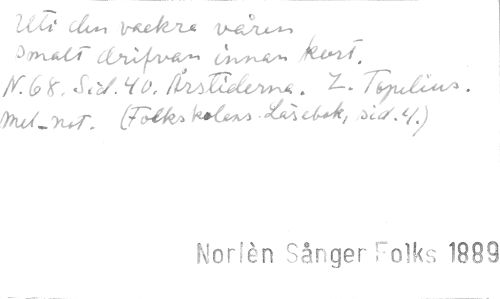 Uti den vackra våren
Smalt drifvan innan kort.
N.68. Sid. 40. Årstiderna. Z. Topelius.
Mel-not. (Folkskolans Läsebok, sid. 4.)
Norlèn Sånger Folks 1889